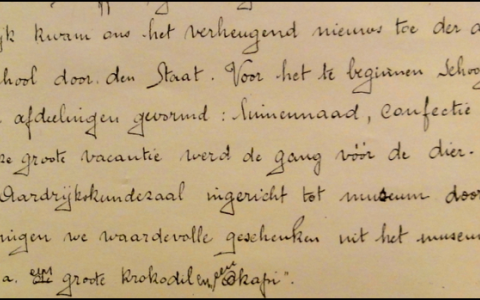 jk kwam ons het verheugend nieuws toe der a
chool door den Staat. Voor het te beginnen schoo
afdeelingen gevormd: Linnennaad, Confectie
ze groote vacantie werd de gang vóór de dier-
Aardrijkskundezaal ingericht tot museum door
nigen we waardevolle geschenken uit het museum
a. groote krokodil en een Okapi".